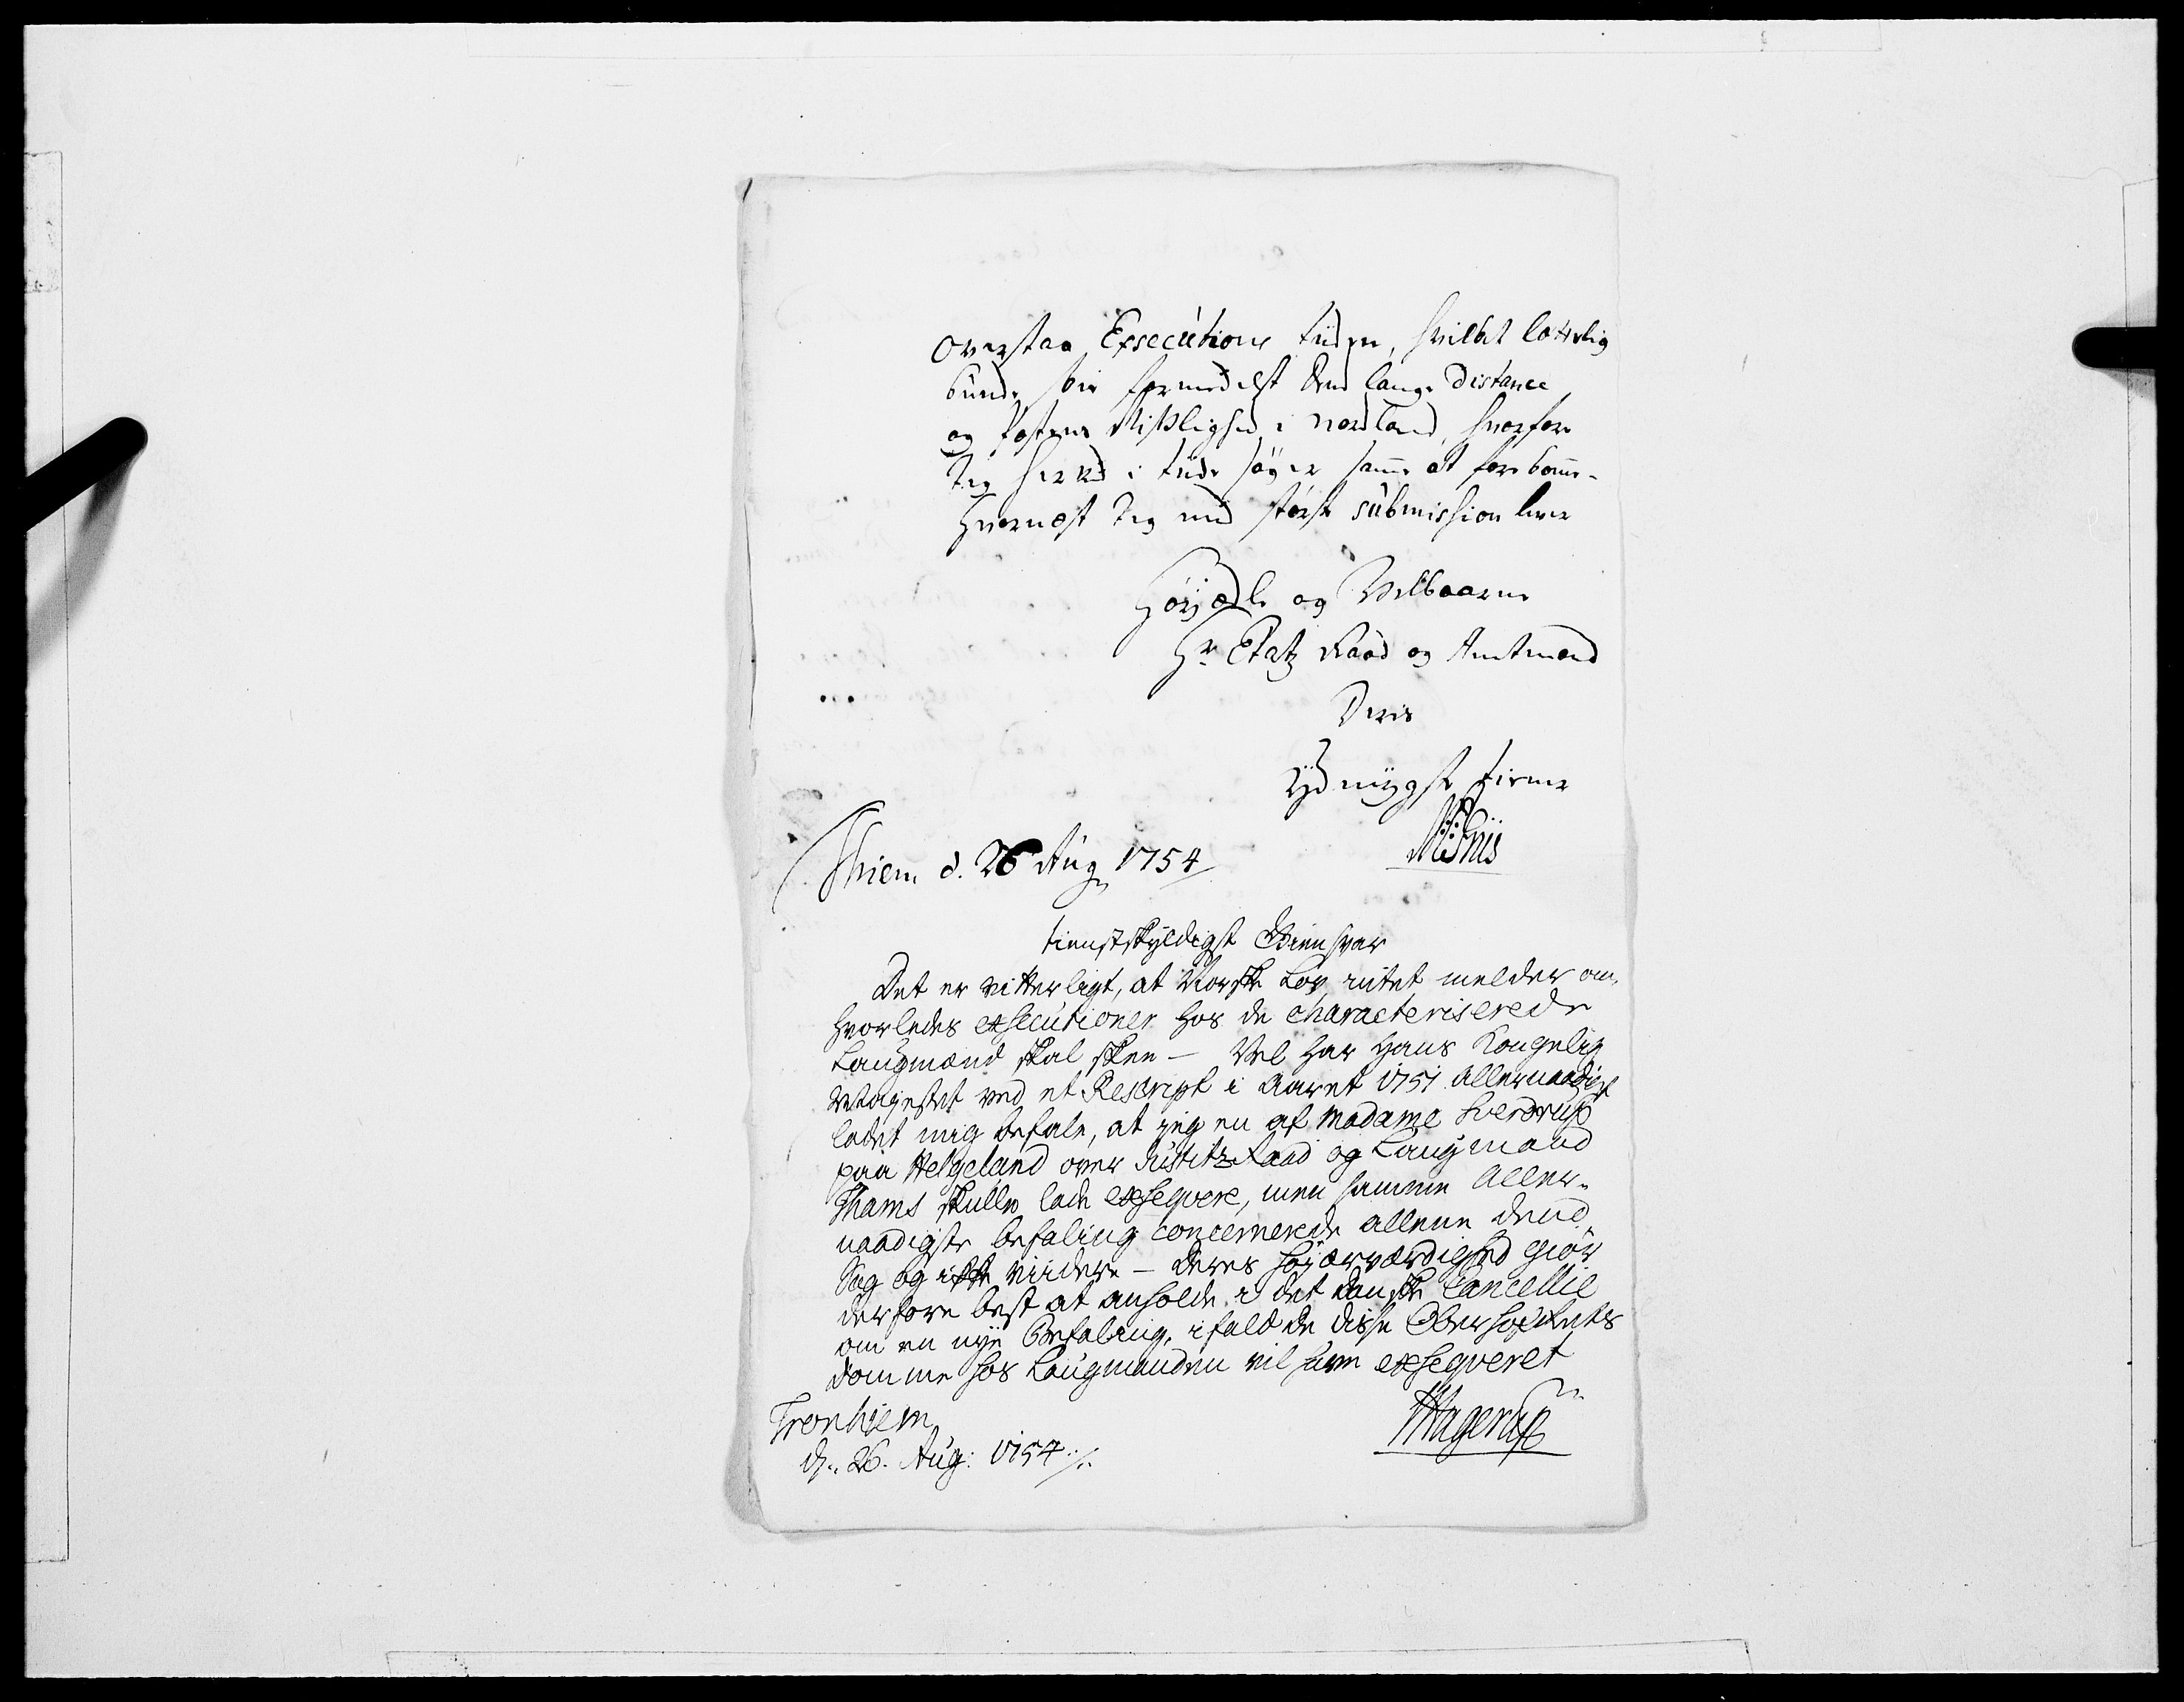 Overstaa Execution tiiden, hvilket lættelig
kunde skee formedelst dend lange Distance
og Postens Mislighed i Nordland, hvorfore
Jeg her ved i tiide søger samme at forekomme.
Hvornæst Jeg med største submission lever
Høyædle og Velbaarne
Hr. Etatz Raad og Amtmand
Deris
Ydmygst tiener
Thiem d. 26 Aug 1754
tienstskyldigst Giensvar
Det er vitterligt, at Norske Lov intet melder om,
hvorledes executioner hos de characteriserede
Laugmænd skal skee - Vel har Hans Kongelig
Mayestet ved et Rescript i Aaret 1751 Allernaadigst
ladet mig befale, at jeg en af Madame Sverdrup
paa Helgeland over Justitz Raad og Laugmand
Thams skulle lade exseqvere, men samme Aller-
naadigste befaling concernerede alleene dend
Sag og ikke viidere - Deres Høyærværdighed giør
derfore best at anholde i det Danske Cancellie
om en nye Befaling, ifald de disse Oberhofrets
Domme hos Laugmanden vil have exseqveret
Tronhiem
d. 26. Aug: 1754
Hagerup